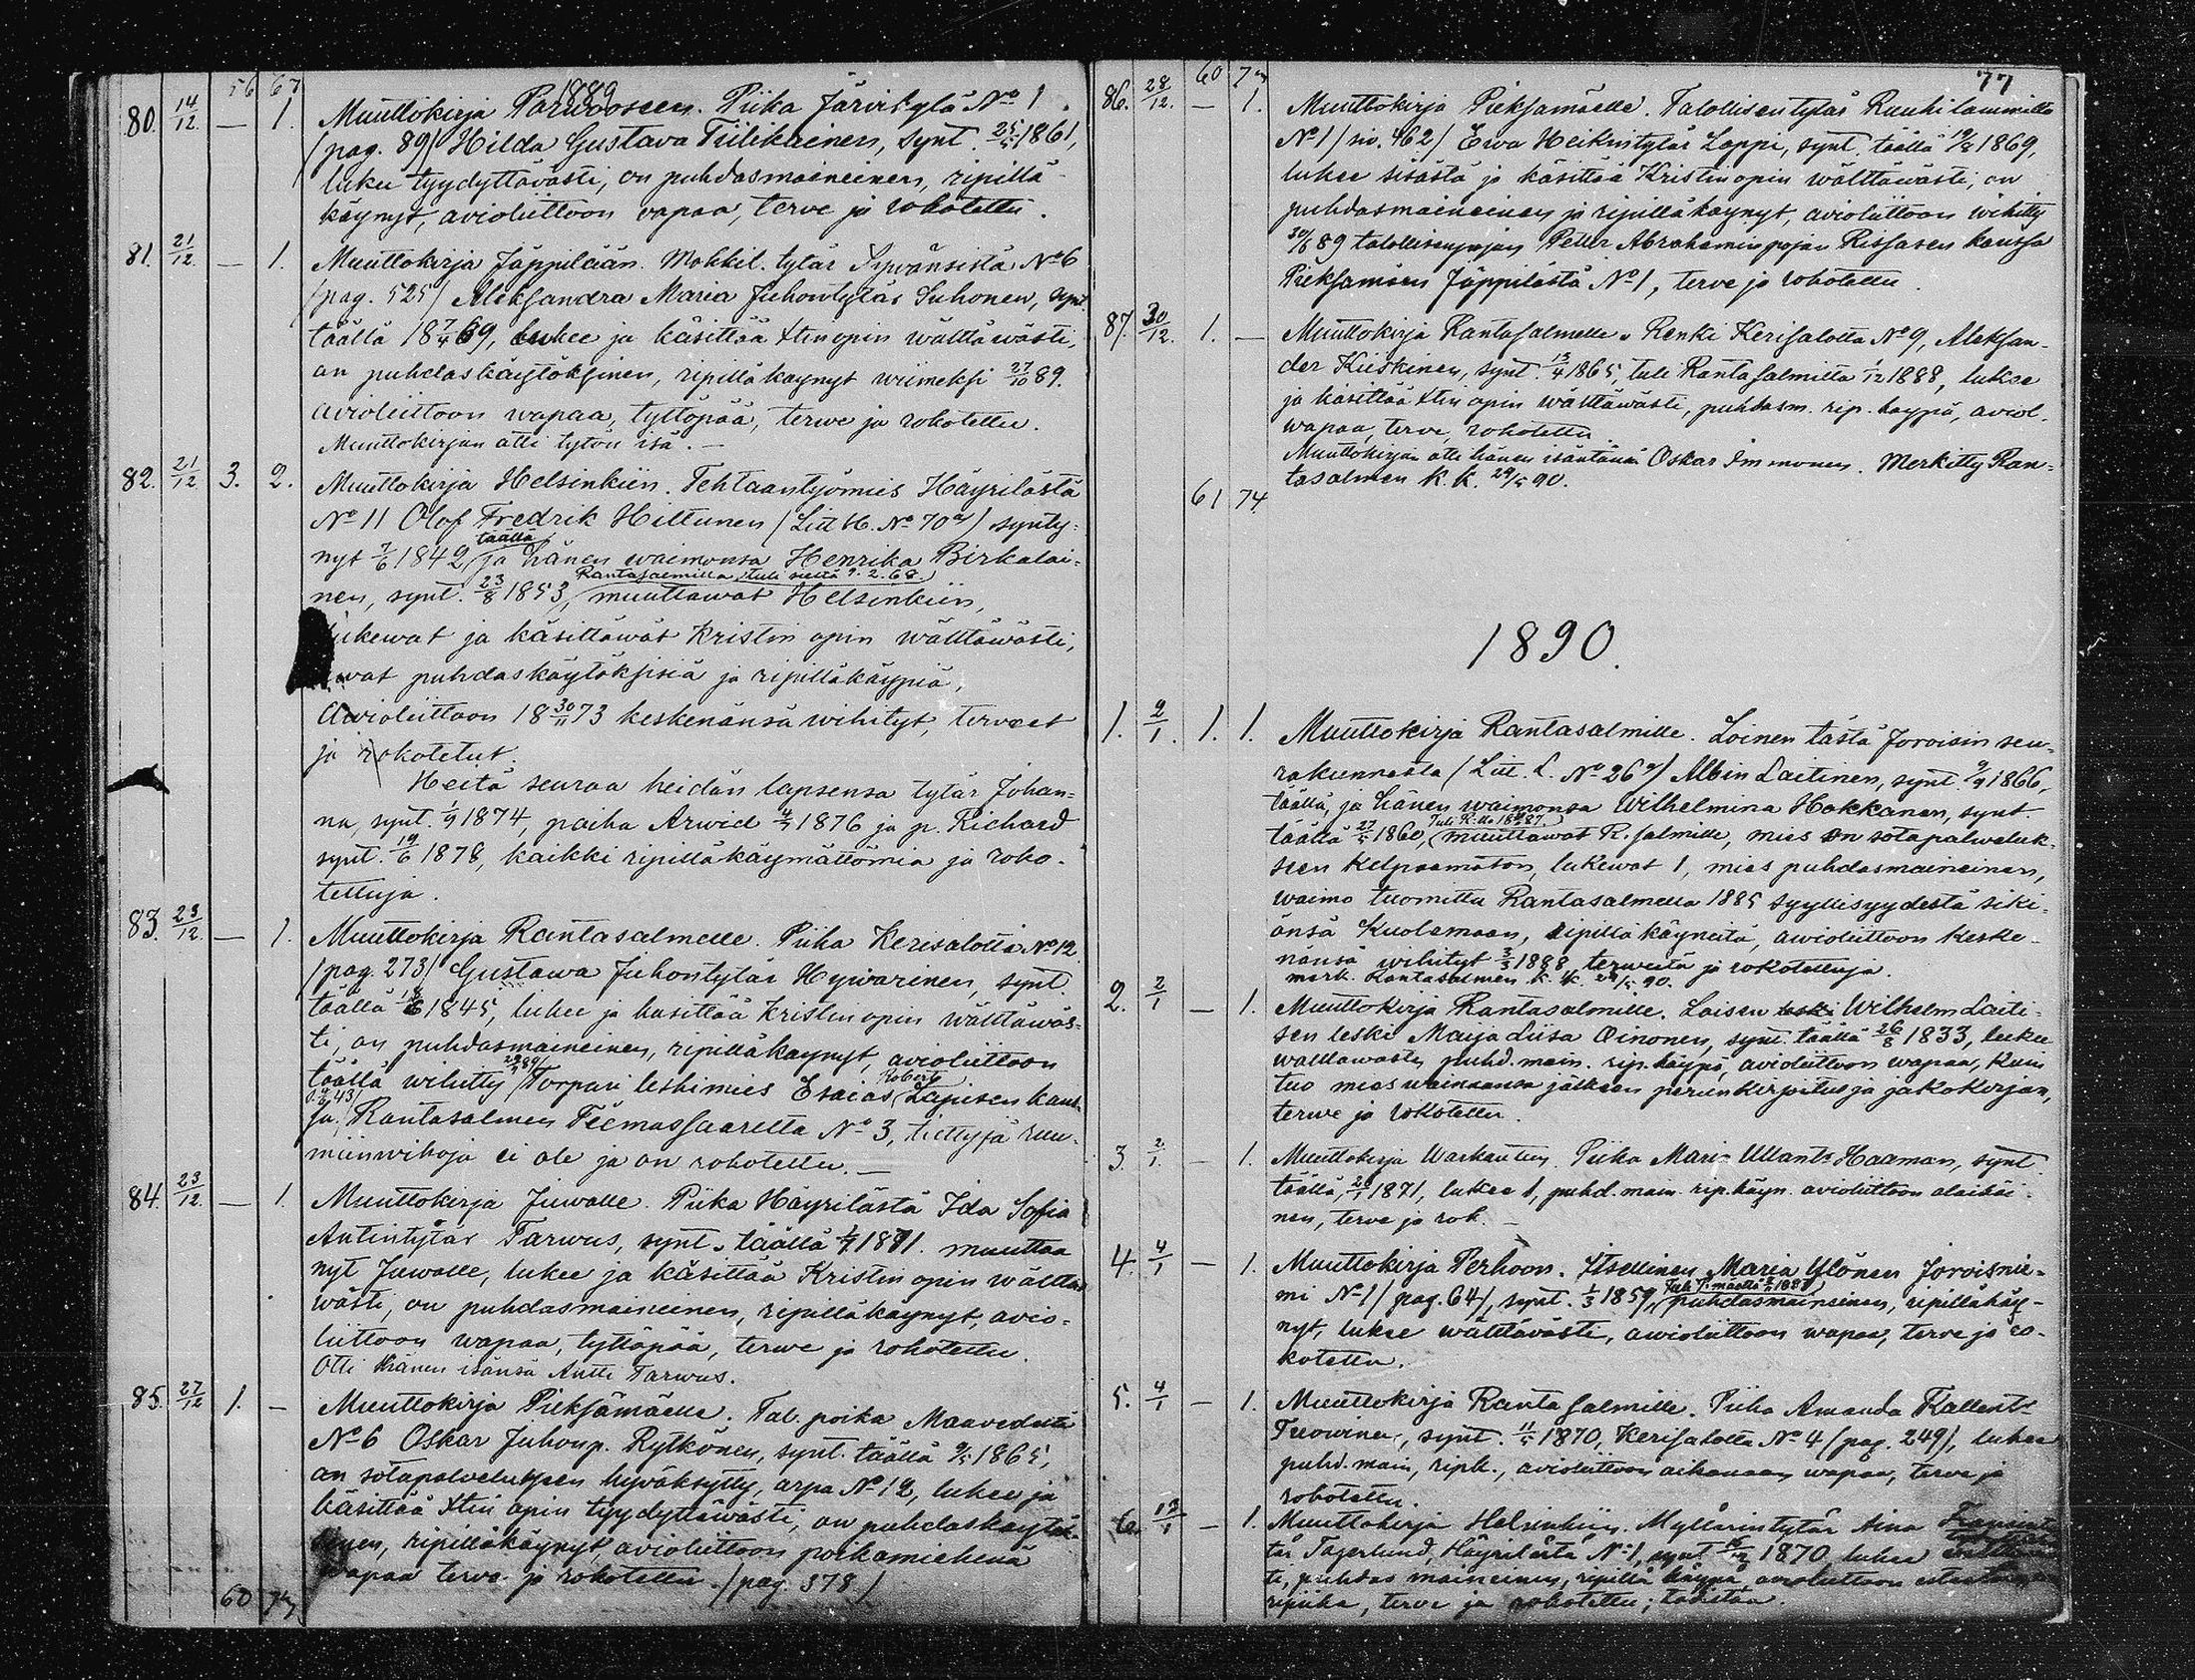 56 67
1889
80. 14/12. — 1. Muuttokirja Porwooseen. Piika Järvikylä No 1.
/pag. 89/ Hilda Gustava Tiilikainen, synt. 25/5 1861,
lukee tyydyttävästi, on puhdasmaineinen, ripillä
käynyt, avioliittoon vapaa, terve ja rokotettu.
81. 21/12. — 1. Muuttokirja Jäppilään. Mökkil. tytär Syvänsistä No 6
/pag. 525/ Aleksandra Maria Juhontytär Suhonen, synt.
täällä 18 7/4 69, lukee ja käsittää Xtinopin wälttäwästi,
on puhdaskäytöksinen, ripillä käynyt wiimeksi 27/10 89.
avioliittoon wapaa, tyttöpää, terwe ja rokotettu.
Muuttokirjan otti tytön isä. —
82. 21/12 3. 2. Muuttokirja Helsinkiin. Tehtaantyömies Häyrilästä
No 11 Olof Fredrik Hiltunen /Litt H. No 70 a/ synty-
täällä
nyt 7/6 1842, ja hänen waimonsa Henrika Birkalai-
Rantasalmilla, tuli sieltä 9.2.68.
nen, synt. 23/8 1853, muuttawat Helsinkiin,
lukewat ja käsittäwät Kristin opin wälttäwästi,
owat puhdaskäytöksisiä ja ripilläkäypiä,
Awioliittoon 18 30/11 73 keskenänsä wihityt, terveet
ja rokotetut.
Heitä seuraa heidän lapsensa tytär Johan-
na, synt. 1/9 1874, poika Arwid 4/7 1876 ja p. Richard
synt. 19/6 1878, kaikki ripilläkäymättömiä ja roko-
tettuja.
83. 23/12. — 1. Muuttokirja Rantasalmelle. Piika Kerisalolta No 12
/pag. 273/ Gustawa Juhontytär Hywärinen, synt.
täällä 1845, lukee ja käsittää Kristin opin wälttäwäs-
ti, on puhdasmaineinen, ripilläkäynyt, avioliittoon
Robert
täällä wihitty Torpari leskimies Esaias Lapisen kans-
sa, Rantasalmen Teemassaarelta No 3, tiettyjä ruu-
miinwikoja ei ole ja on rokotettu. —
84. 23/12. — 1. Muuttokirja Juwalle. Piika Häyrilästä Ida Sofia
Antintytär Tarwus, synt. täällä 1871. muuttaa
nyt Juwalle, lukee ja käsittää Kristin opin wälttä-
wästi, on puhdasmaineinen, ripilläkäynyt, avio-
liittoon wapaa, tyttöpää, terwe ja rokotettu.
Otti hänen isänsä Antti Tarwus.
85. 27/12 1. — Muuttokirja Pieksämäelle. Tal. poika Maavedeltä
No 6 Oskar Juhonp. Rytkönen, synt. täällä 9/5 1865,
on sotapalvelukseen hyväksytty, arpa No 12, lukee ja
käsittää Xtin opin tyydyttäwästi, on puhdaskäytök-
sinen, ripilläkäynyt, avioliittoon poikamiehenä
wapaa terve ja rokotettu. /pag. 378/
60 74
77
60 73
86. 28/12. — 1. Muuttokirja Pieksämäelle. Talollisentytär Ruuhilammilta
No 1 /siv. 462/ Ewa Heikintytär Loppi, synt. täällä 1869,
lukee sisästä ja käsittää Kristinopin wälttäwästi, on
puhdasmaineinen ja ripilläkäynyt, avioliittoon wihitty
30/6 89 talollisenpojan Petter Abrahaminpojan Rissasen kanssa
Pieksämäen Jäppilästä No 1, terve ja rokotettu.
87. 30/12. 1. — Muuttokirja Rantasalmelle. Renki Kerisalolta No 9, Aleksan-
der Kiiskinen, synt. 13/4 1865, tuli Rantasalmilta 1/12 1888, lukee
ja käsittää Xtin opin wälttäwästi, puhdasm. rip. käypä, aviol.
wapaa, terve, rokotettu.
Muuttokirjan otti hänen isäntänsä Oskar Immonen. Merkitty Ran-
tasalmen k. k. 29/5 90.
61 74
1890.
1. 2/1. 1. 1. Muuttokirja Rantasalmille. Loinen tästä Joroisin seu-
rakunnasta (Litt. L. No 26 a) Albin Laitinen, synt. 9/9 1866,
täällä, ja hänen waimonsa Wilhelmina Hokkanen, synt.
täällä 27/5 1860, muuttawat R.salmille, mies on sotapalweluk-
seen kelpaamaton, lukewat 1, mies puhdasmaineinen,
waimo tuomittu Rantasalmella 1885 syyllisyydestä siki-
önsä kuolemaan, ripilläkäyneitä, awioliittoon keske-
nänsä wihityt 3/3 1888, terweitä ja rokotettuja.
merk. Rantasalmen k. k. 29/5 90.
2. 2/1 — 1. Muuttokirja Rantasalmille. Loisen leski Wilhelm Laiti-
sen leski Maija Liisa Oinonen, synt. täällä 26/8 1833, lukee
wälttäwästi, puhd.main. rip.käypä, avioliittoon wapaa, kuin
tuo mieswainaansa jälkeen perunkirjoitus ja jakokirjan,
terwe ja rokotettu.
3. 2/1. — 1. Muuttokirja Warkauteen. Piika Maria Ullantr Haaman, synt.
täällä, 1871, lukee 1, puhd. main. rip.käyn. avioliittoon alaikäi-
nen, terve ja rok. —
4. 4/1 — 1. Muuttokirja Perhoon. Itsellinen Maria Ylönen Joroisnie-
mi No 1 /pag. 64/, synt. 1/3 1859, puhdasmaineinen, ripilläkäy-
nyt, lukee wälttävästi, awioliittoon wapaa, terve ja ro-
kotettu.
5. 4/1 — 1. Muuttokirja Rantasalmille. Piika Amanda Kallentr
Teowinen, synt. 11/5 1870, Kerisalolta No 4 (pag. 249), lukee
puhd. main, ripk., avioliittoon aikanaan wapaa, terve ja
rokotettu.
6. 13/1 — 1. Muuttokirja Helsinkiin. Myllärintytär Aina
tär Tagerlund, Häyrilästä No 1, synt. 1870 lukee
ti, puhdas maineinen, ripillä käypä, avioliittoon
ripiika, terve ja rokotettu; todistaa.